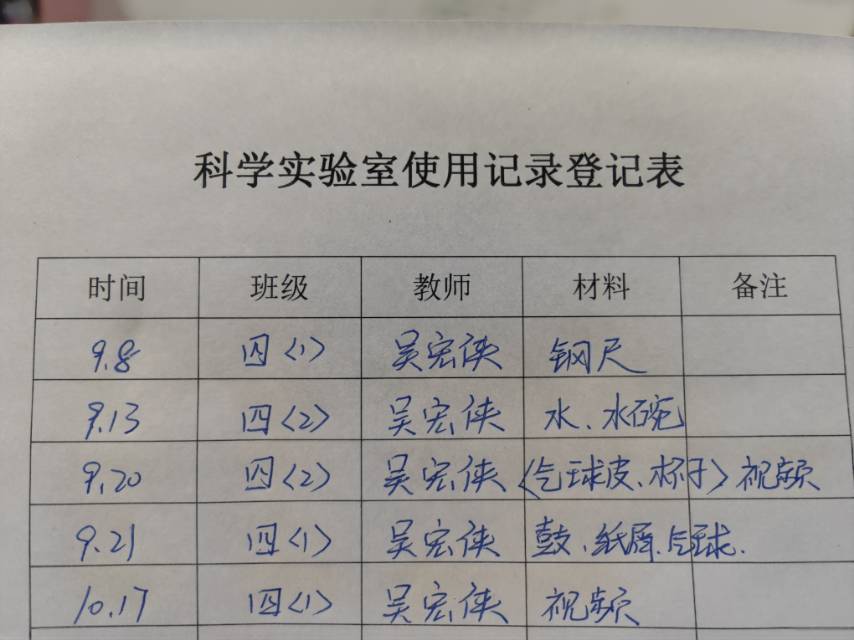 科学实验室使用记录登记表
时间 班级 教师 材料 备注
9.8 四〈1〉 吴宏侠 钢尺
9.13 四〈2〉 吴宏侠 水、水碗
9.20 四〈2〉 吴宏侠 〈气球皮、杯子〉视频
9.21 四〈1〉 吴宏侠 鼓、纸屑、气球.
10.17 四〈1〉 吴宏侠 视频